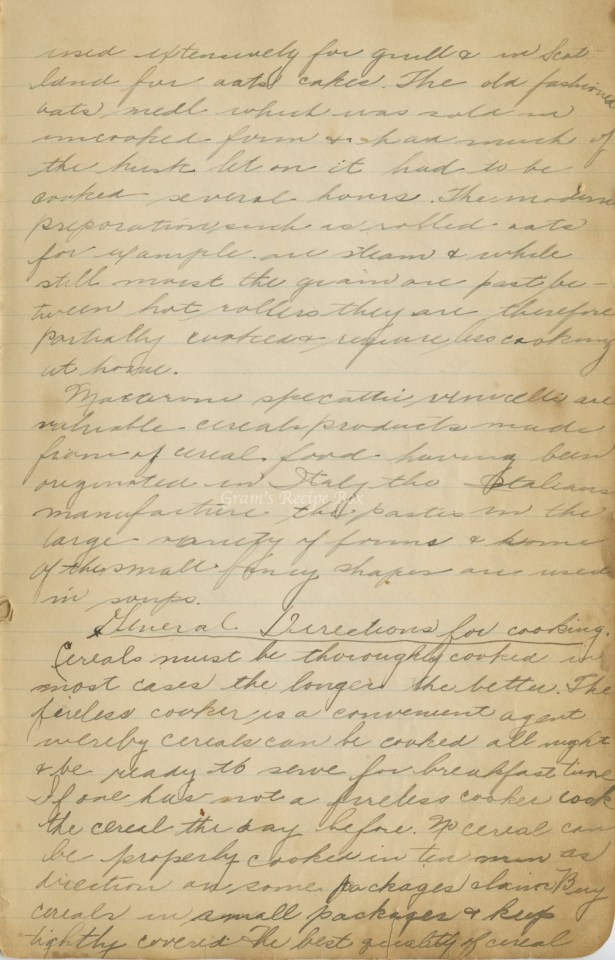 used extensively for gruel & in Scot-
land for oats cakes. The old fashioned
oats meal which was sold in
uncooked form & had much of
the husk let on it had to be
cooked several hours. The modern
preporation such as rolled oats
for example are steam & while
still moist the grain are past be-
tween hot rollers they are therefore
partially cooked & require less cooking
at home.
Macaroni spegattie vermicelli are
valuable cereals products made
from of cereal food having been
originated in Italy the Italians
manufacture the pastes in the
large variety of forms & some
of the small fancy shapes are used
in soups.
General Directions for cooking.
Cereals must be thoroughly cooked in
most cases the longer the better. The
fireless cooker is a convenient agent
wereby cereals can be cooked all night
& be ready to serve for breakfast time
If one has not a fireless cooker cook
the cereal the day before. No cereal can
be properly cooked in ten min as
direction on some packages claim. Buy
cereals in small packages & keep
tightly covered The best quality of cereal
Gram's Recipe Box